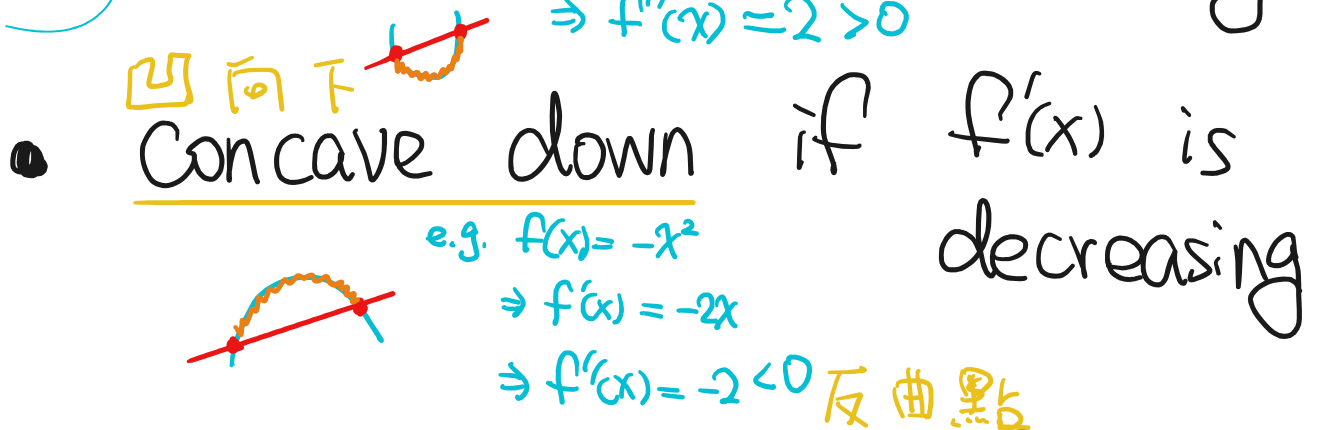 ⇒ f''(x) = 2 > 0
凹向下
• Concave down if f'(x) is
decreasing
e.g. f(x) = -x²
⇒ f'(x) = -2x
⇒ f''(x) = -2 < 0
反曲點